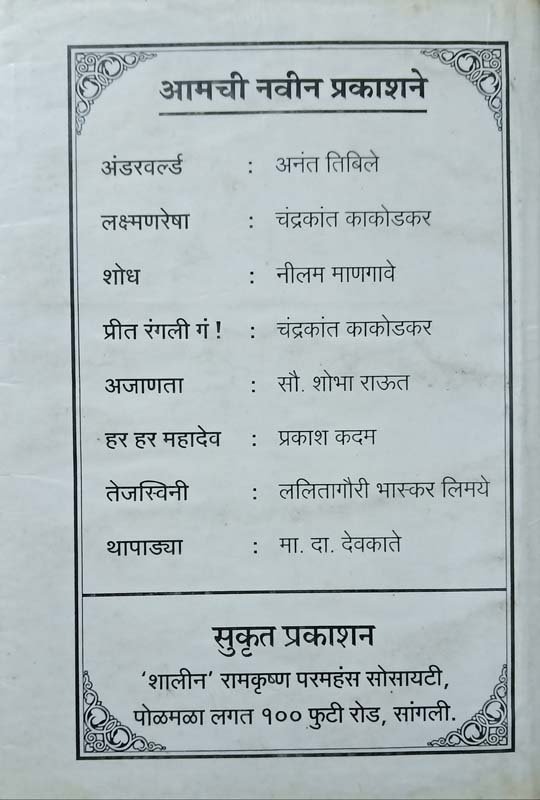 आमची नवीन प्रकाशने
अंडरवर्ल्ड : अनंत तिबिले
लक्ष्मणरेषा : चंद्रकांत काकोडकर
शोध : नीलम माणगावे
प्रीत रंगली गं ! : चंद्रकांत काकोडकर
अजाणता : सौ. शोभा राऊत
हर हर महादेव : प्रकाश कदम
तेजस्विनी : ललितागौरी भास्कर लिमये
थापाड्या : मा. दा. देवकाते
सुकृत प्रकाशन
‘शालीन’ रामकृष्ण परमहंस सोसायटी,
पोळमळा लगत १०० फुटी रोड, सांगली.